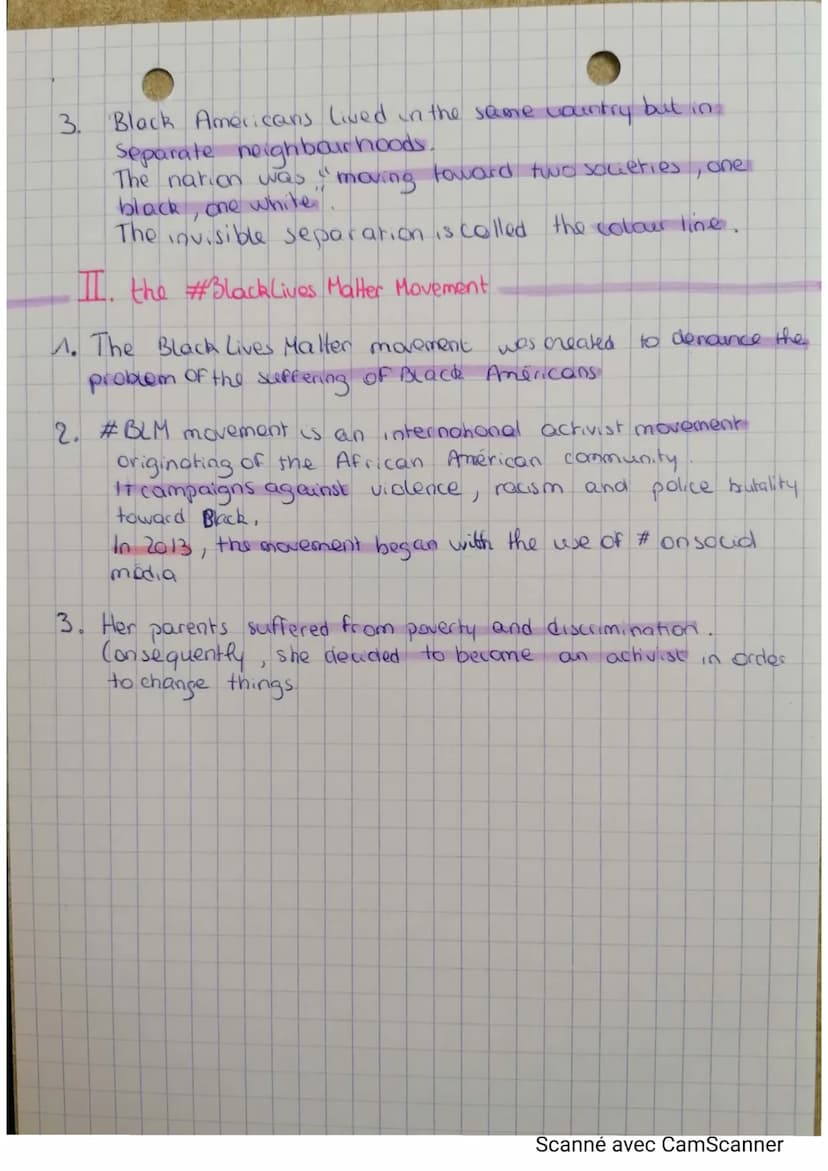 3. Black Américans lived in the same country but in
separate neighbourhoods.
The nation was "moving toward two societies, one
black, one white".
The invisible separation is called the colour line.
II. the #BlackLives Matter Movement
1. The Black Lives Matter movement was created to denounce the
problem of the suffering of Black Américans
2. #BLM movement is an international activist movement
originating of the African Américan community.
It campaigns against violence, racism and police brutality
toward Black.
In 2013, the movement began with the use of # on social
média
3. Her parents suffered from poverty and discrimination.
Consequently, she decided to become an activist in order
to change things
Scanné avec CamScanner